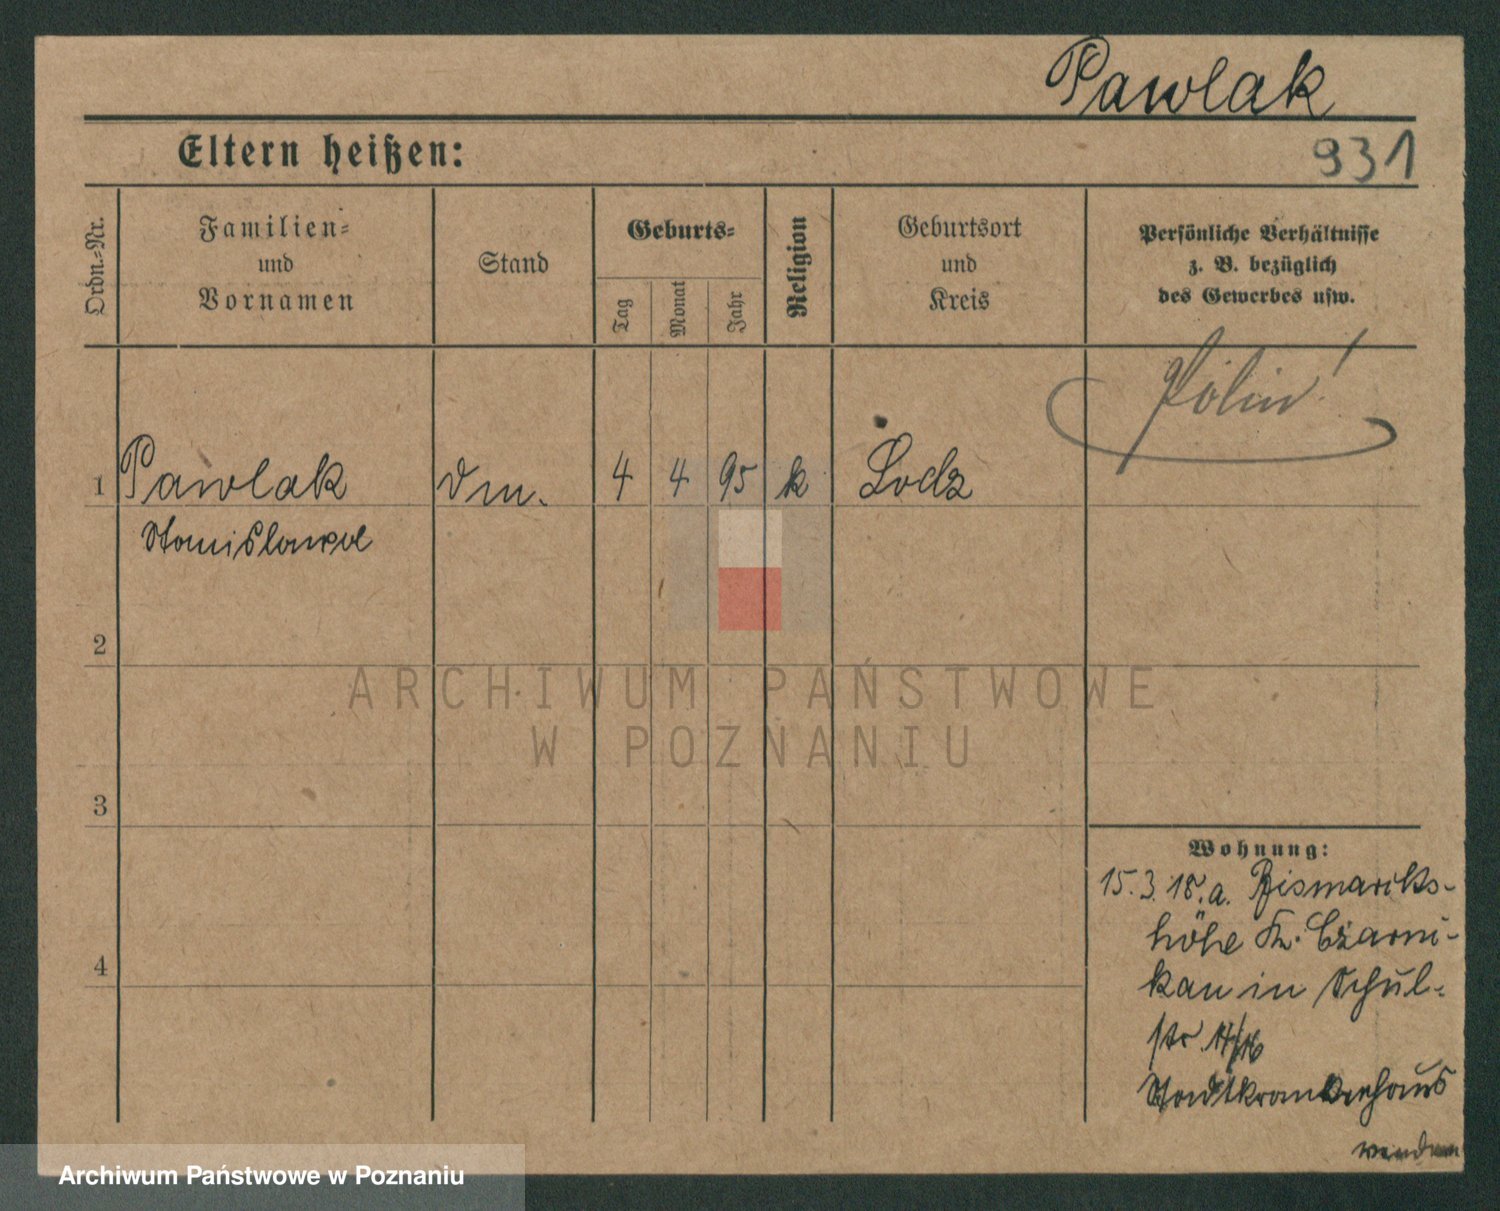 Pawlak
Eltern heißen:
931
Ordn.-Nr.
Familien-
und
Vornamen
Stand
Geburts-
Tag
Monat
Jahr
Religion
Geburtsort
und
Kreis
Persönliche Verhältnisse
z. B. bezüglich
des Gewerbes usw.
Polin!
1 Pawlak 4 4 95 k Lodz
Stanislawa
2
3
4
Wohnung:
15.3.18. a. Bismarcks-
höhe Kr. Czarni-
kau in Schul-
str
Stadtkrankenhaus
wenden
ARCHIWUM PAŃSTWOWE
W POZNANIU
Archiwum Państwowe w Poznaniu